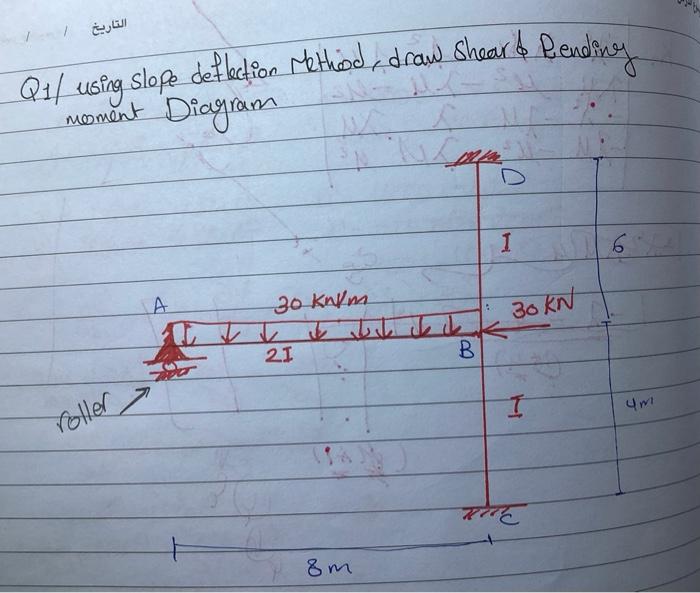 التاريخ / /
Q1/ using slope deflection Method, draw Shear & Bending
moment Diagram
D
I
6
A
30 KN/m
30 KN
2I
B
roller
I
4m
C
8m